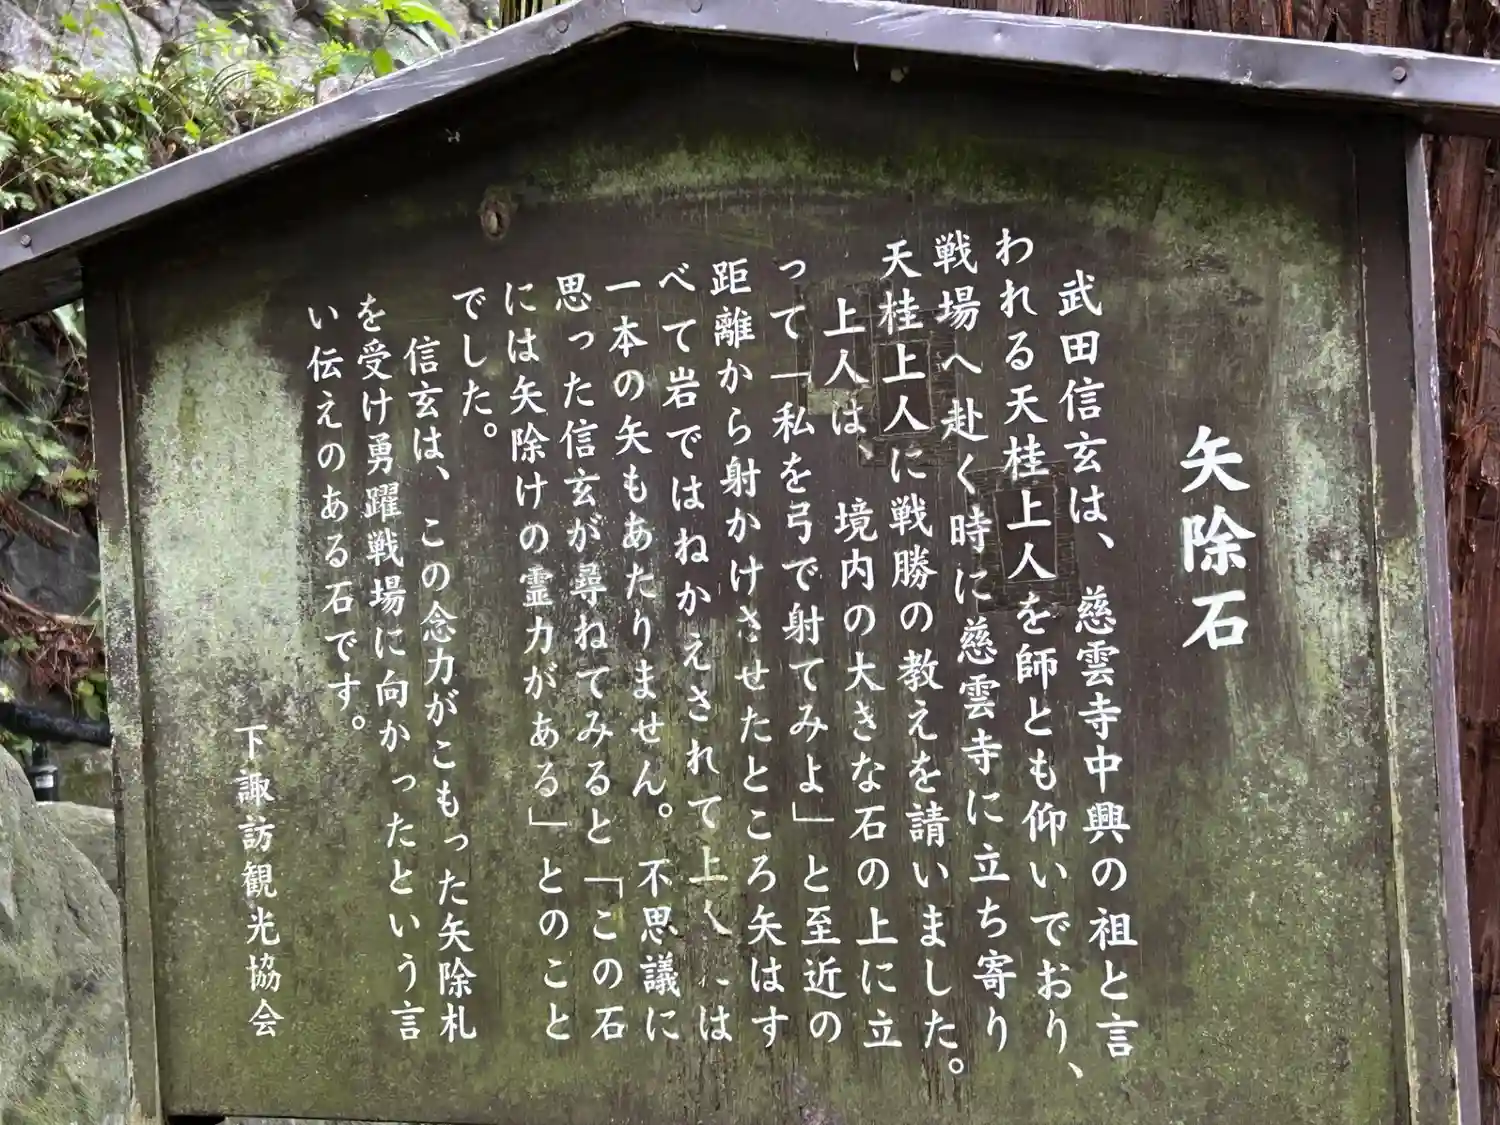 矢除石
武田信玄は、慈雲寺中興の祖と言
われる天桂上人を師とも仰いでおり、
戦場へ赴く時に慈雲寺に立ち寄り
天桂上人に戦勝の教えを請いました。
上人は、境内の大きな石の上に立
って「私を弓で射てみよ」と至近の
距離から射かけさせたところ矢はす
べて岩ではねかえされて上人には
一本の矢もあたりません。不思議に
思った信玄が尋ねてみると「この石
には矢除けの霊力がある」とのこと
でした。
信玄は、この念力がこもった矢除札
を受け勇躍戦場に向かったという言
い伝えのある石です。
下諏訪観光協会